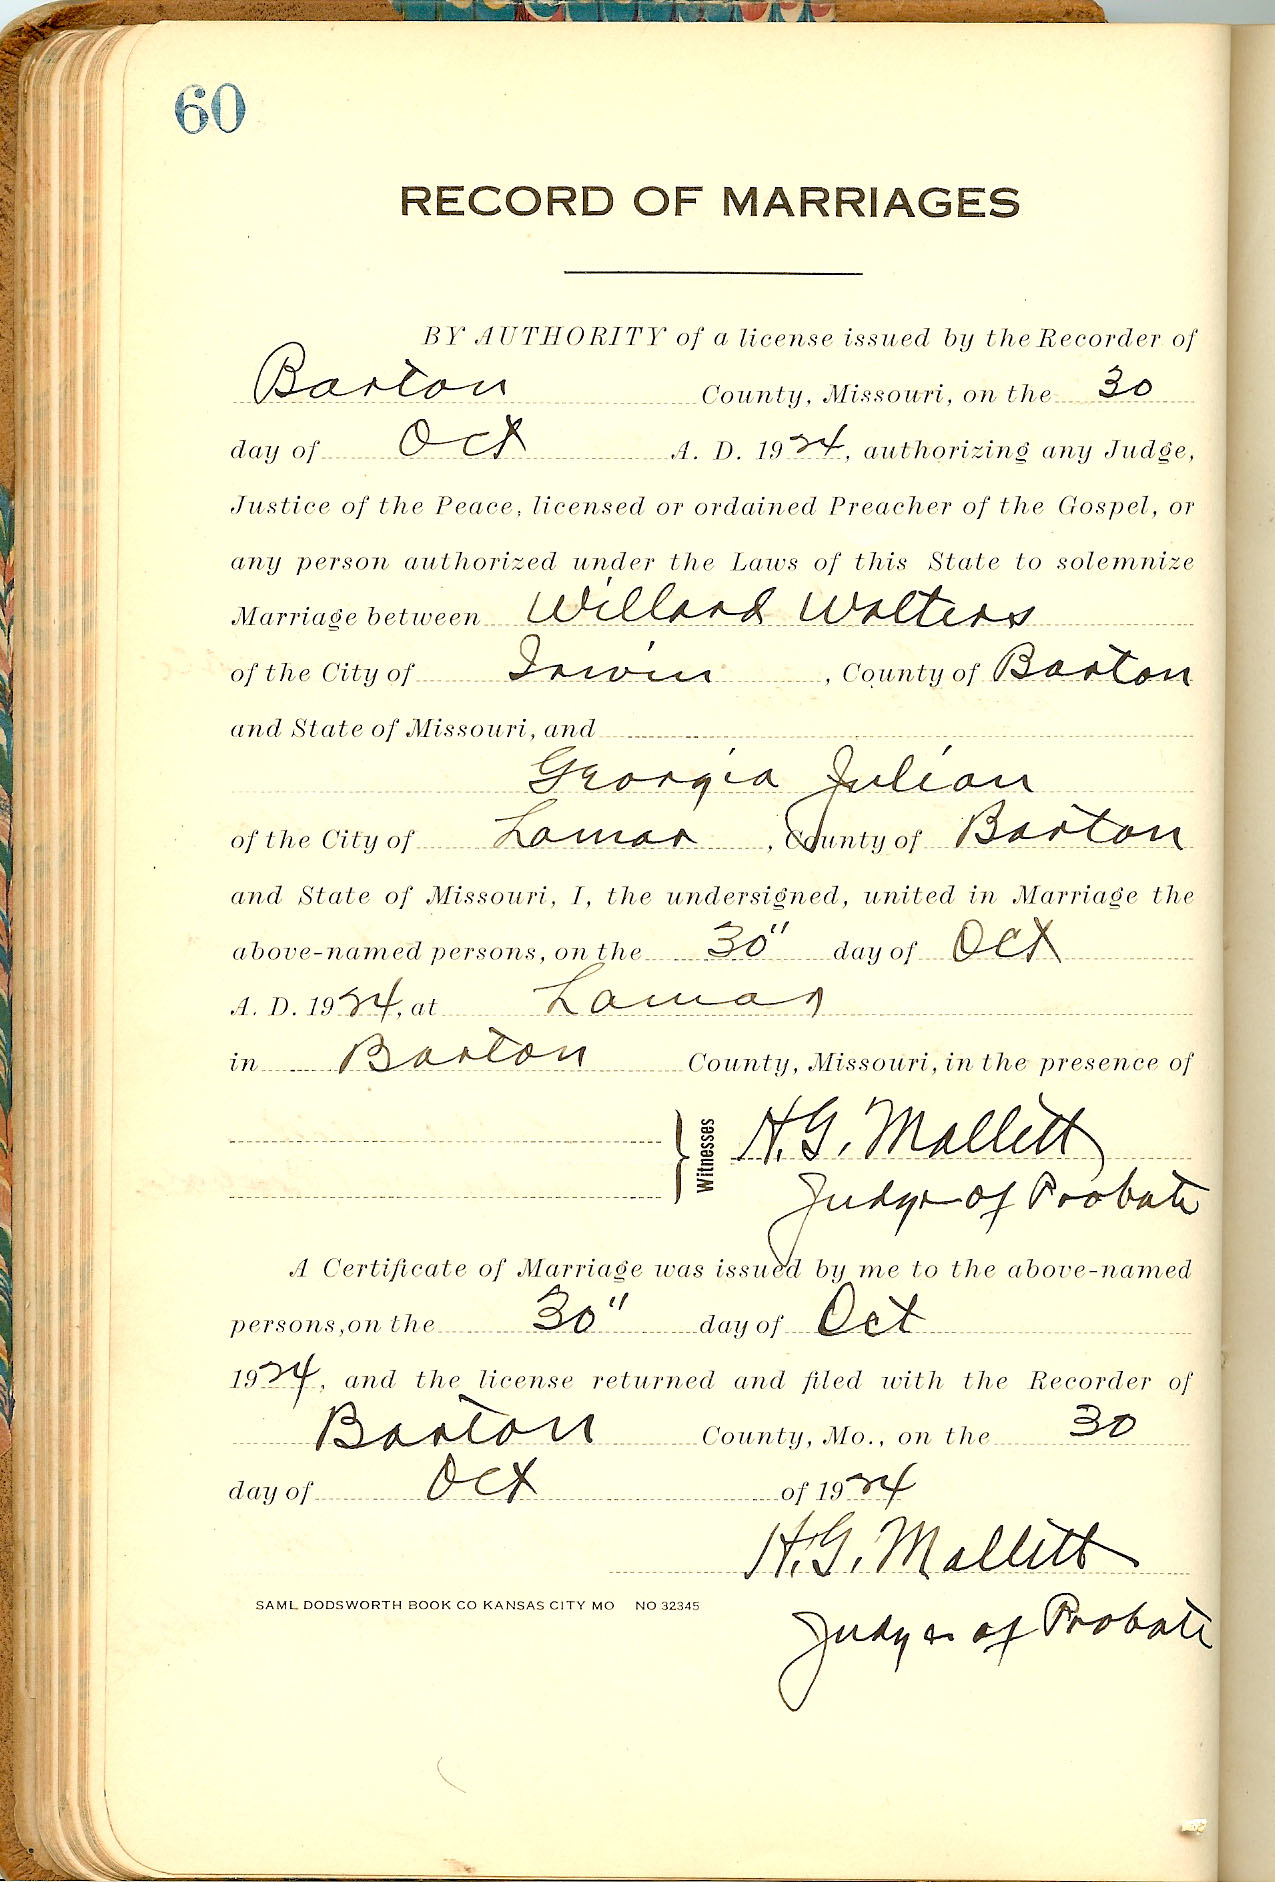 60
RECORD OF MARRIAGES
BY AUTHORITY of a license issued by the Recorder of
Barton County, Missouri, on the 30
day of Oct A. D. 1924, authorizing any Judge,
Justice of the Peace, licensed or ordained Preacher of the Gospel, or
any person authorized under the Laws of this State to solemnize
Marriage between Willard Walters
of the City of Irwin, County of Barton
and State of Missouri, and
Georgia Julian
of the City of Lamar, County of Barton
and State of Missouri, I, the undersigned, united in Marriage the
above-named persons, on the 30" day of Oct
A. D. 1924, at Lamar
in Barton County, Missouri, in the presence of
Witnesses H. G. Mallett
Judge of Probate
A Certificate of Marriage was issued by me to the above-named
persons, on the 30" day of Oct
1924, and the license returned and filed with the Recorder of
Barton County, Mo., on the 30
day of Oct of 1924
H. G. Mallett
SAML DODSWORTH BOOK CO KANSAS CITY MO NO 32345
Judge of Probate